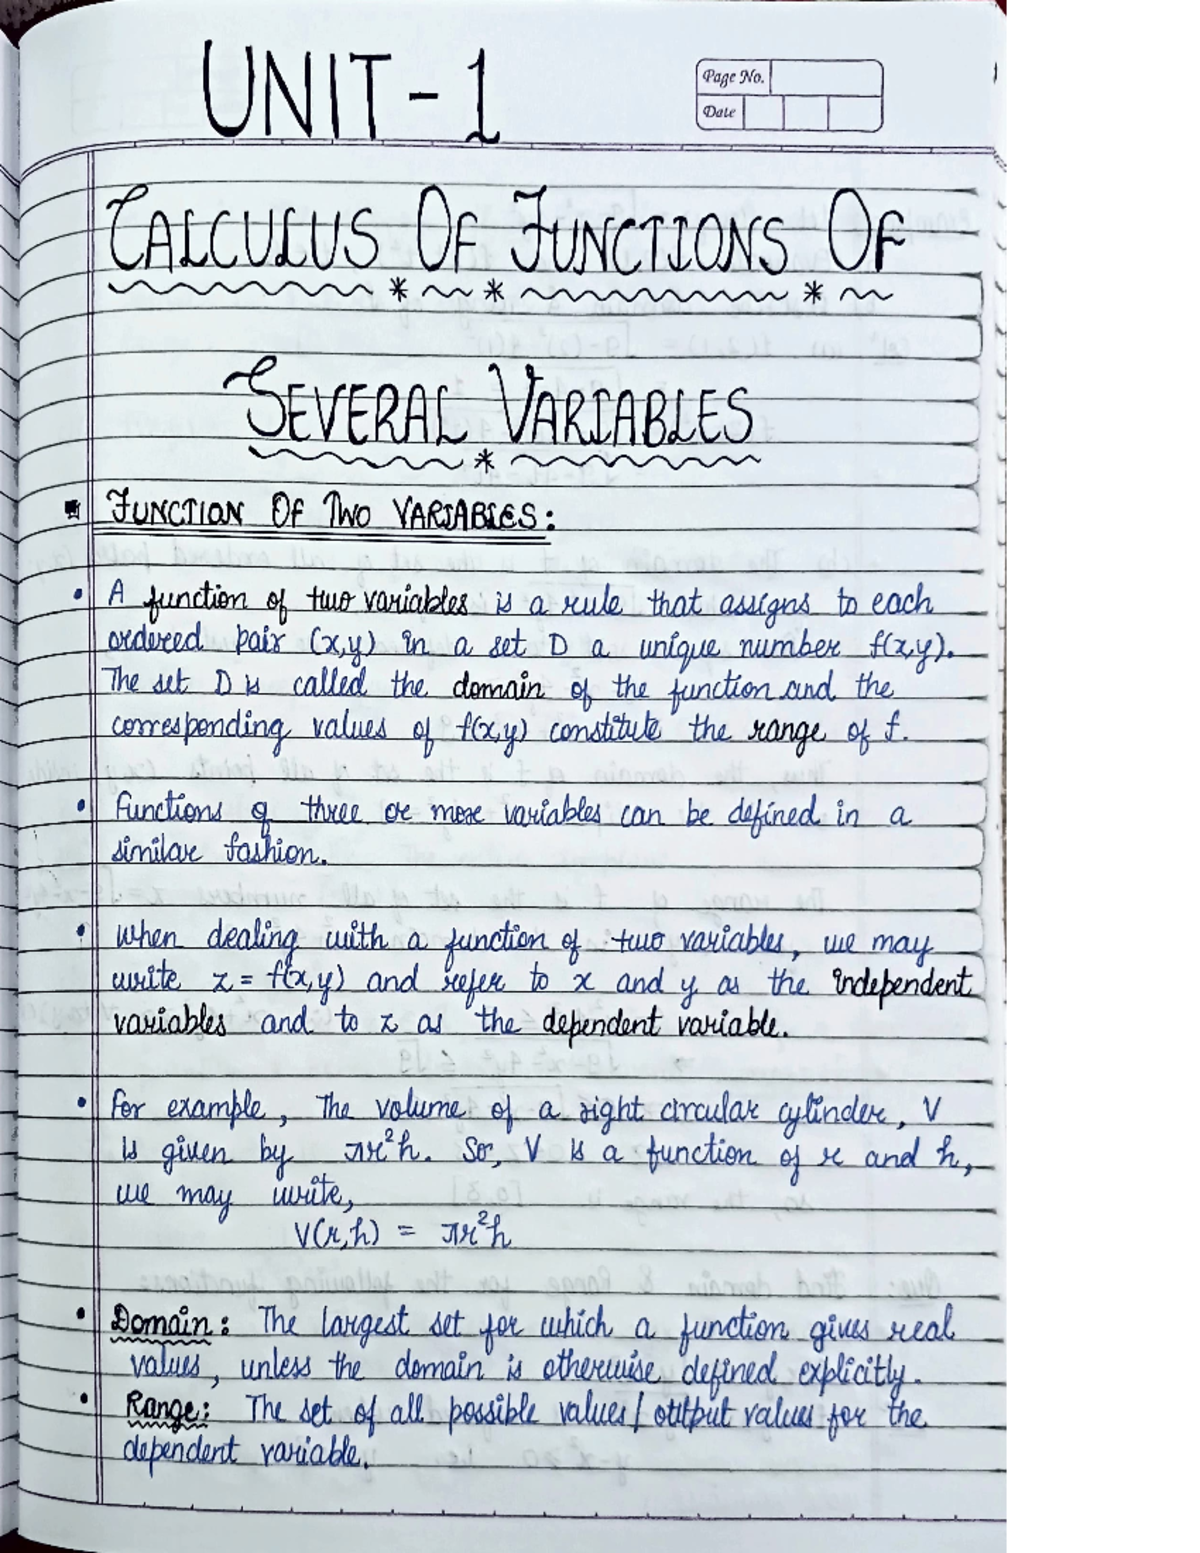 UNIT - 1
Page No.
Date
CALCULUS OF FUNCTIONS OF
SEVERAL VARIABLES
FUNCTION OF TWO VARIABLES:
• A function of two variables is a rule that assigns to each
ordered pair (x,y) in a set D a unique number f(x,y).
The set D is called the domain of the function and the
corresponding values of f(x,y) constitute the range of f.
• Functions of three or more variables can be defined in a
similar fashion.
• When dealing with a function of two variables, we may
write z = f(x,y) and refer to x and y as the independent
variables and to z as the dependent variable.
• For example, The volume of a right circular cylinder, V
is given by πr²h. So, V is a function of r and h,
we may write,
V(r,h) = πr²h
• Domain: The largest set for which a function gives real
values, unless the domain is otherwise defined explicitly.
• Range: The set of all possible values/output values for the
dependent variable.